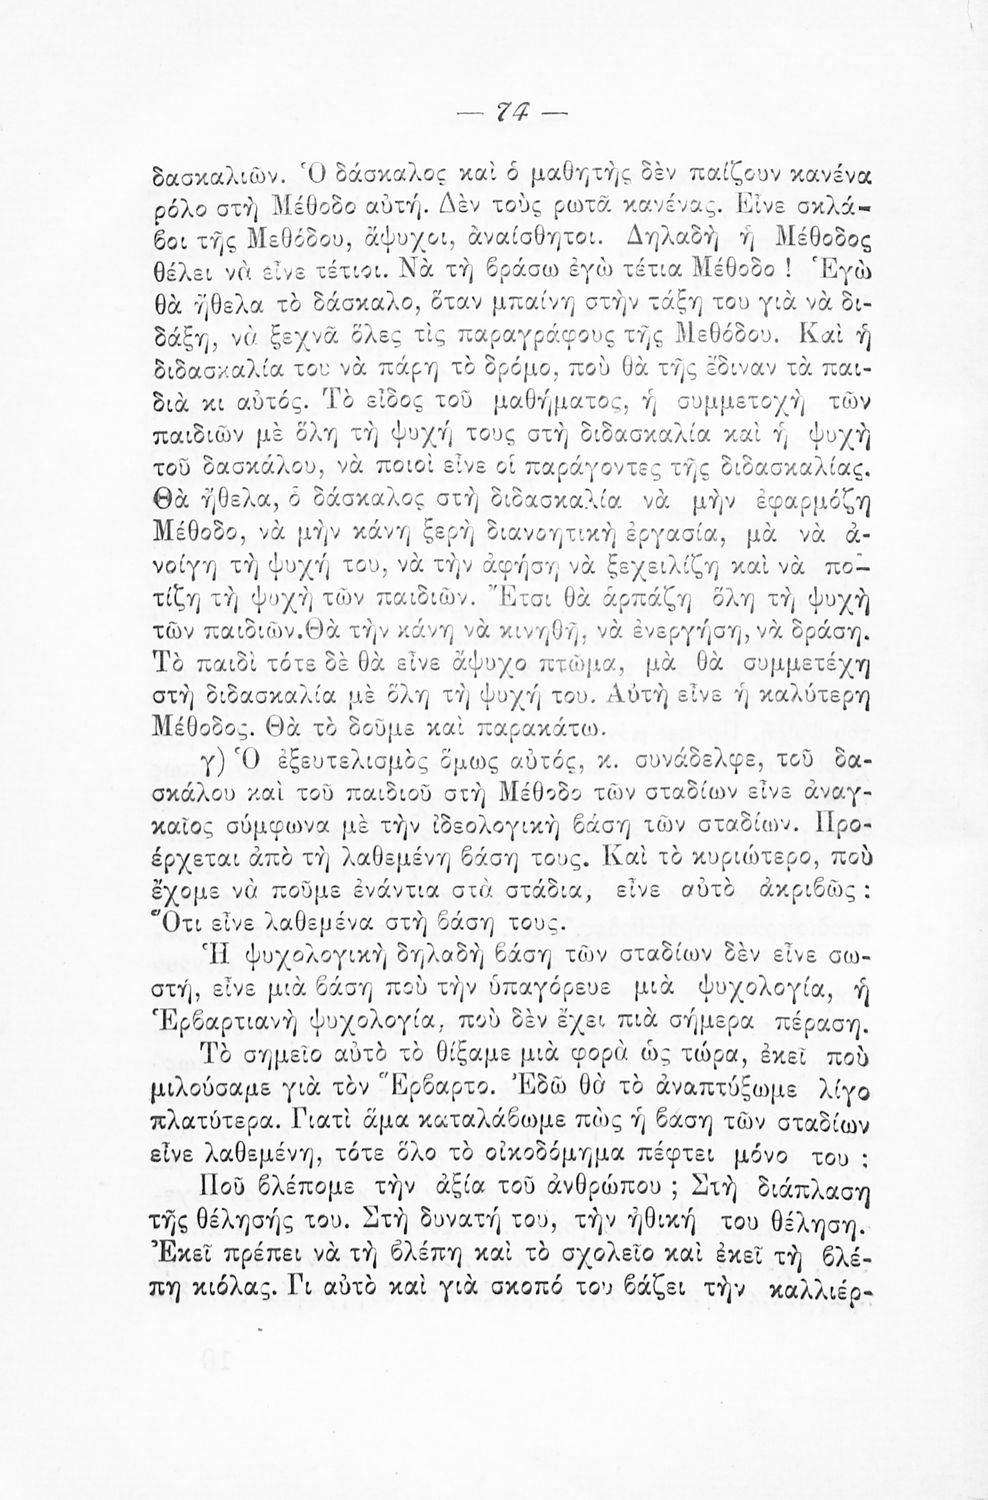 — 74 —
δασκαλιῶν. Ὁ δάσκαλος καὶ ὁ μαθητὴς δὲν παίζουν κανένα
ρόλο στὴ Μέθοδο αὐτή. Δὲν τοὺς ρωτᾶ κανένας. Εἶνε σκλά-
βοι τῆς Μεθόδου, ἄψυχοι, ἀναίσθητοι. Δηλαδὴ ἡ Μέθοδος
θέλει νὰ εἶνε τέτιοι. Νὰ τὴ βράσω ἐγὼ τέτια Μέθοδο ! Ἐγὼ
θὰ ἤθελα τὸ δάσκαλο, ὅταν μπαίνῃ στὴν τάξη του γιὰ νὰ δι-
δάξῃ, νὰ ξεχνᾶ ὅλες τὶς παραγράφους τῆς Μεθόδου. Καὶ ἡ
διδασκαλία του νὰ πάρῃ τὸ δρόμο, ποὺ θὰ τῆς ἔδιναν τὰ παι-
διὰ κι αὐτός. Τὸ εἶδος τοῦ μαθήματος, ἡ συμμετοχὴ τῶν
παιδιῶν μὲ ὅλη τὴ ψυχή τους στὴ διδασκαλία καὶ ἡ ψυχὴ
τοῦ δασκάλου, νὰ ποιοὶ εἶνε οἱ παράγοντες τῆς διδασκαλίας.
Θὰ ἤθελα, ὁ δάσκαλος στὴ διδασκαλία νὰ μὴν ἐφαρμόζῃ
Μέθοδο, νὰ μὴν κάνῃ ξερὴ διανοητικὴ ἐργασία, μὰ νὰ ἀ-
νοίγῃ τὴ ψυχή του, νὰ τὴν ἀφήσῃ νὰ ξεχειλίζῃ καὶ νὰ πο-
τίζῃ τὴ ψυχὴ τῶν παιδιῶν. Ἔτσι θὰ ἁρπάζῃ ὅλη τὴ ψυχὴ
τῶν παιδιῶν.Θὰ τὴν κάνῃ νὰ κινηθῇ, νὰ ἐνεργήσῃ, νὰ δράσῃ.
Τὸ παιδὶ τότε δὲ θὰ εἶνε ἄψυχο πτῶμα, μὰ θὰ συμμετέχῃ
στὴ διδασκαλία μὲ ὅλη τὴ ψυχή του. Αὐτὴ εἶνε ἡ καλύτερη
Μέθοδος. Θὰ τὸ δοῦμε καὶ παρακάτω.
γ) Ὁ ἐξευτελισμὸς ὅμως αὐτός, κ. συνάδελφε, τοῦ δα-
σκάλου καὶ τοῦ παιδιοῦ στὴ Μέθοδο τῶν σταδίων εἶνε ἀναγ-
καῖος σύμφωνα μὲ τὴν ἰδεολογικὴ βάση τῶν σταδίων. Προ-
έρχεται ἀπὸ τὴ λαθεμένη βάση τους. Καὶ τὸ κυριώτερο, ποὺ
ἔχομε νὰ ποῦμε ἐνάντια στὰ στάδια, εἶνε αὐτὸ ἀκριβῶς :
Ὅτι εἶνε λαθεμένα στὴ βάση τους.
Ἡ ψυχολογικὴ δηλαδὴ βάση τῶν σταδίων δὲν εἶνε σω-
στή, εἶνε μιὰ βάση ποὺ τὴν ὑπαγόρευε μιὰ ψυχολογία, ἡ
Ἑρβαρτιανὴ ψυχολογία, ποὺ δὲν ἔχει πιὰ σήμερα πέραση.
Τὸ σημεῖο αὐτὸ τὸ θίξαμε μιὰ φορὰ ὡς τώρα, ἐκεῖ ποὺ
μιλούσαμε γιὰ τὸν Ἕρβαρτο. Ἐδῶ θὰ τὸ ἀναπτύξωμε λίγο
πλατύτερα. Γιατὶ ἅμα καταλάβωμε πὼς ἡ βάση τῶν σταδίων
εἶνε λαθεμένη, τότε ὅλο τὸ οἰκοδόμημα πέφτει μόνο του ;
Ποῦ βλέπομε τὴν ἀξία τοῦ ἀνθρώπου ; Στὴ διάπλαση
τῆς θέλησής του. Στὴ δυνατή του, τὴν ἠθική του θέληση.
Ἐκεῖ πρέπει νὰ τὴ βλέπῃ καὶ τὸ σχολεῖο καὶ ἐκεῖ τὴ βλέ-
πῃ κιόλας. Γι αὐτὸ καὶ γιὰ σκοπό του βάζει τὴν καλλιέρ-